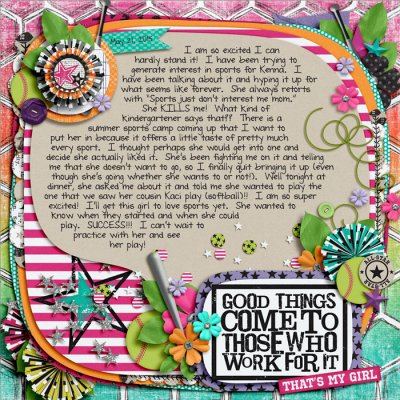 May 21, 2015
I am so excited I can
hardly stand it!  I have been trying to
generate interest in sports for Kenna.  I
have been talking about it and hyping it up for
what seems like forever.  She always retorts
with "Sports just don't interest me mom."
She KILLS me!  What kind of
kindergartener says that??  There is a
summer sports camp coming up that I want to
put her in because it offers a little taste of pretty much
every sport.  I thought perhaps she would get into one and
decide she actually liked it.  She's been fighting me on it and telling
me that she doesn't want to go, so I finally quit bringing it up (even
though she's going whether she wants to or not!).  Well tonight at
dinner, she asked me about it and told me she wanted to play the
one that we saw her cousin Kaci play (softball)!!  I am so super
excited!  I'll get this girl to love sports yet.  She wanted to
know when they started and when she could
play.  SUCCESS!!!  I can't wait to
practice with her and see
her play!
ALL-STAR
GOOD THINGS
COME TO
THOSE WHO
WORK FOR IT
THAT'S MY GIRL